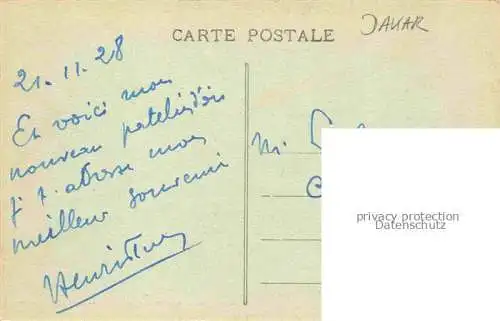 CARTE POSTALE
DAKAR
21-11-28
Et voici mon
nouveau patelin d'où
j' t'adresse mon
meilleur souvenir
M.
privacy protection
Datenschutz